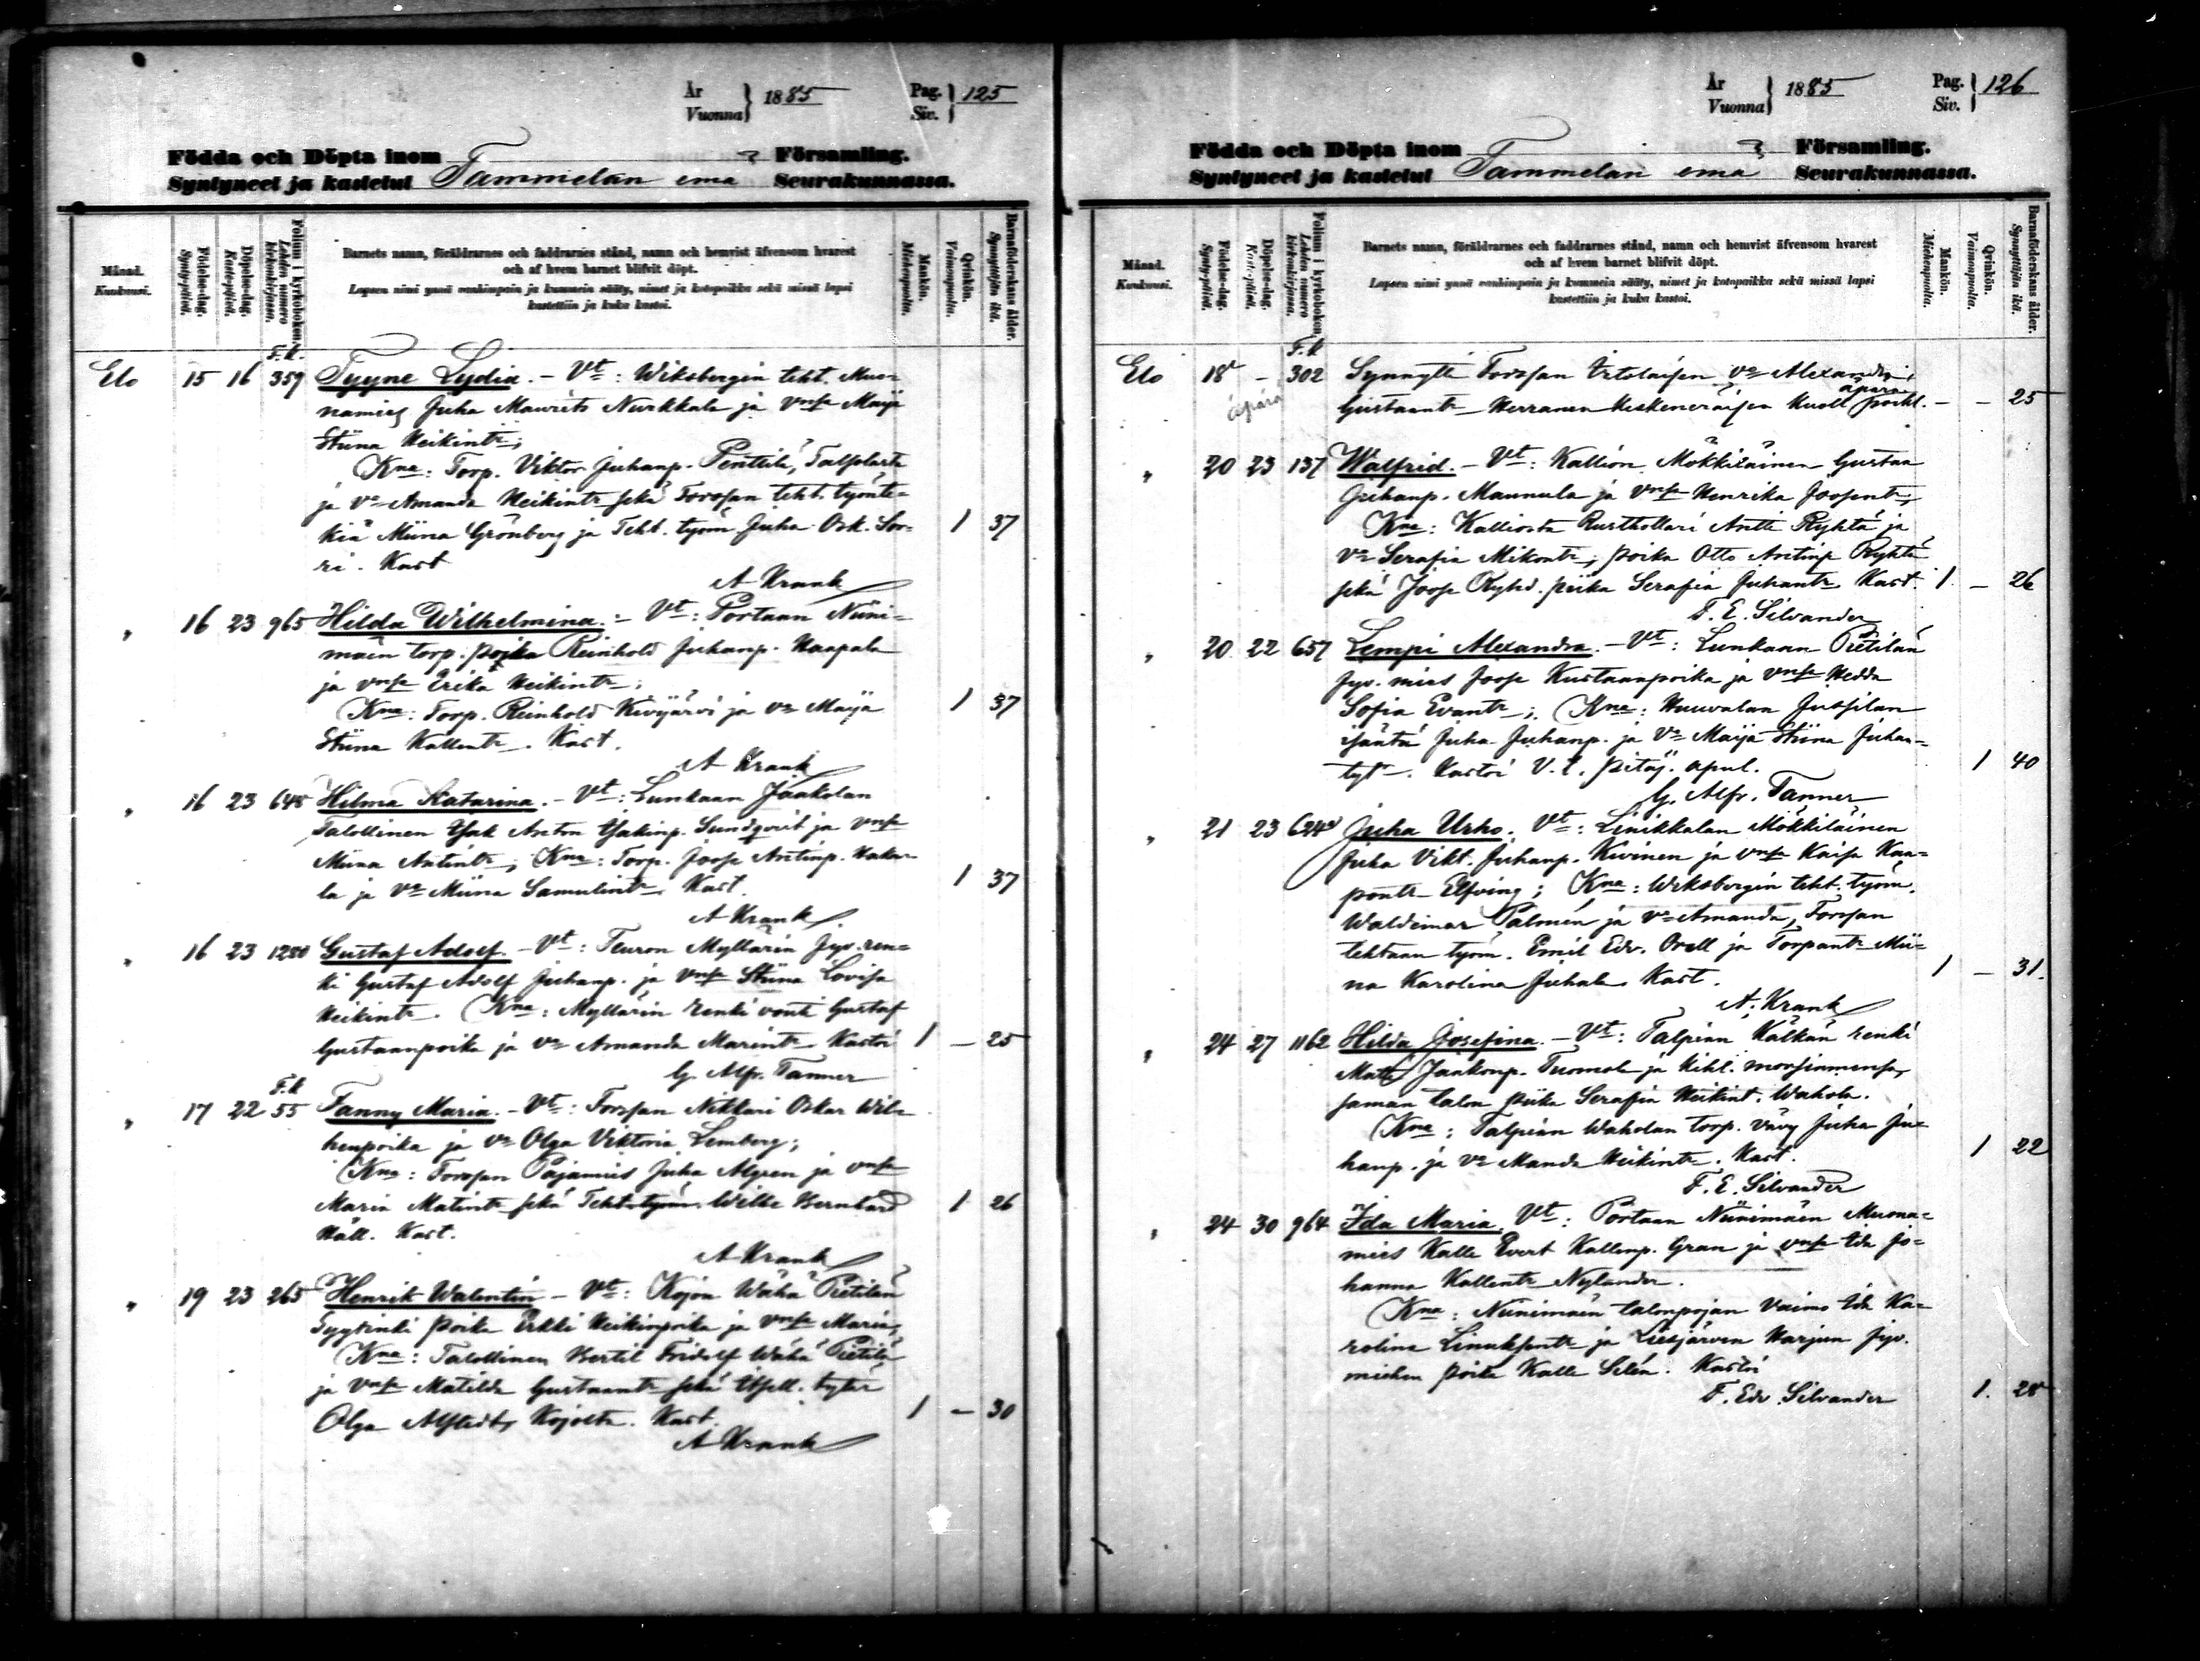 År
Vuonna } 1885
Pag.
Siv. } 125
Födda och Döpta inom Församling.
Syntyneet ja kastetut Tammelan ema Seurakunnassa.
Månad.
Kuukausi.
Födelse-dag.
Synty-päivä.
Döpelse-dag.
Kaste-päivä.
Folium i kyrkoboken.
Lehden numero kirkonkirjassa.
Barnets namn, föräldrarnes och faddrarnes stånd, namn och hemvist äfvensom hvarest
och af hvem barnet blifvit döpt.
Lapsen nimi ynnä vanhimpain ja kummein sääty, nimet ja kotopaikka sekä missä lapsi
kastettiin ja kuka kastoi.
Mankön.
Miehenpuolta.
Qvinkön.
Vaimonpuolta.
Barnaföderskans ålder.
Synnyttäjän ikä.
F. k.
Elo 15 16 359 Tyyne Lydia. - Vt: Wiksbergin teht. Muo-
namies Juha Maurits Nurkkala ja vmsa Maija
Stiina Heikintr;
Kna: Torp. Viktor Juhanp. Penttilä, Talpiasta
ja vo Amanda Heikintr sekä Forssan teht. työnte-
kiä Miina Grönberg ja Teht. työm Juha Osk. Sor- 1 37
ri. Kast
A Krank
" 16 23 965 Hilda Wilhelmina. - Vt: Portaan Niini-
mäen torp. poika Reinhold Juhanp. Haapala
ja vmsa Erika Heikintr;
Kna: Torp. Reinhold Kivijärvi ja vo Maija 1 37
Stiina Kallentr. Kast.
A Krank
" 16 23 648 Hilma Katarina. - Vt: Lunkaan Jaakolan
Talollinen Isak Anton Isakinp. Sundqvist ja vmsa
Miina Antintr; Kna: Torp. Joose Antinp. Haka-
la ja vo Miina Samulintr. Kast. 1 37
A Krank
" 16 23 1280 Gustaf Adolf. - Vt: Teuron Myllärin Jyv. ren-
ki Gustaf Adolf Juhanp. ja vmsa Stiina Lovisa
Heikintr. Kna: Myllärin renki vouti Gustaf
Gustaanpoika ja vo Amanda Marintr. Kastoi 1 - 25
G. Alfr. Tanner
F. k
" 17 22 55 Fanny Maria. - Vt: Forssan Nikkari Oskar Wil-
henpoika ja vo Olga Viktoria Lemberg;
Kna: Forssan Pajamies Juha Algren ja vmsa
Maria Matintr sekä Teht. työm. Wilhe Bernhard 1 26
Häll. Kast.
A Krank
" 19 23 265 Henrik Walentin - Vt: Kojon Wähä Pietilän
Syytinki poika Erkki Heikinpoika ja vmsa Maria,
Kna: Talollinen Bertil Fridolf Wähä Pietilä
ja vmsa Matilda Gustaantr sekä Itsell. tytär
Olga Alfstedt, Kojolta. Kast. 1 - 30
A Krank
År
Vuonna } 1885
Pag.
Siv. } 126
Födda och Döpta inom Församling.
Syntyneet ja kastetut Tammelan ema Seurakunnassa.
Månad.
Kuukausi.
Födelse-dag.
Synty-päivä.
Döpelse-dag.
Kaste-päivä.
Folium i kyrkoboken.
Lehden numero kirkonkirjassa.
Barnets namn, föräldrarnes och faddrarnes stånd, namn och hemvist äfvensom hvarest
och af hvem barnet blifvit döpt.
Lapsen nimi ynnä vanhimpain ja kummein sääty, nimet ja kotopaikka sekä missä lapsi
kastettiin ja kuka kastoi.
Mankön.
Miehenpuolta.
Qvinkön.
Vaimonpuolta.
Barnaföderskans ålder.
Synnyttäjän ikä.
F. k
Elo 18 - 302 Synnytti Forssan Irtolaisen vo Alexandra
äpärä Gustaantr Herranen Keskeneräisen Kuoll äpärä poikl. - - 25
" 20 23 137 Walfrid. - Vt: Kallion Mökkiläinen Gustaa
Juhanp. Maunula ja vmsa Henrika Joosentr;
Kna: Kalliosta Rusthollari Antti Ryhtä ja
vo Serafia Mikontr, poika Otto Antinp Ryhtä
sekä Joose Ryhd. piika Serafia Juhantr Kast. 1. - 26
F. E. Silvander
" 20 22 657 Lempi Alexandra. - Vt: Lunkaan Pietilän
Jyv. mies Joose Kustaanpoika ja vmsa Hedda
Sofia Evantr; Kna: Huuvalan Jussilan
isäntä Juha Juhanp. ja vo Maija Stiina Juhan-
tyt. Kastoi V. t. pitäj. apul. 1 40
G. Alfr. Tanner
" 21 23 624 Juha Urho. Vt: Linikkalan Mökkiläinen
Juha Vikt. Juhanp. Kivinen ja vmsa Kaisa Kaa-
pontr Elfving; Kna: Wiksbergin teht. työm.
Waldemar Palmén ja vo Amanda, Forssan
tehtaan työm. Emil Edv. Orell ja Torpantr Mii-
na Karolina Juhala. Kast. 1 - 31.
A. Krank
" 24 27 1162 Hilda Josefina. - Vt: Talpian Kälkän renki
Matti Jaakonp. Tuomola ja kihl. morsiamensa,
saman talon piika Serafia Heikint. Wahola.
Kna: Talpian Waholan torp. vävy Juha Ju-
hanp. ja vo Manda Heikintr. Kast. 1 22
F. E. Silvander
" 24 30 964 Ida Maria. Vt: Portaan Niinimäen Muona-
mies Kalle Evert Kallenp. Gran ja vmsa Ida Jo-
hanna Kallentr Nylander.
Kna: Niinimäen talonpojan vaimo Ida Ka-
rolina Linuksentr ja Liesjärven Harjun jyv.
miehen poika Kalle Selén. Kastoi
F. Edv. Silvander 1. 28